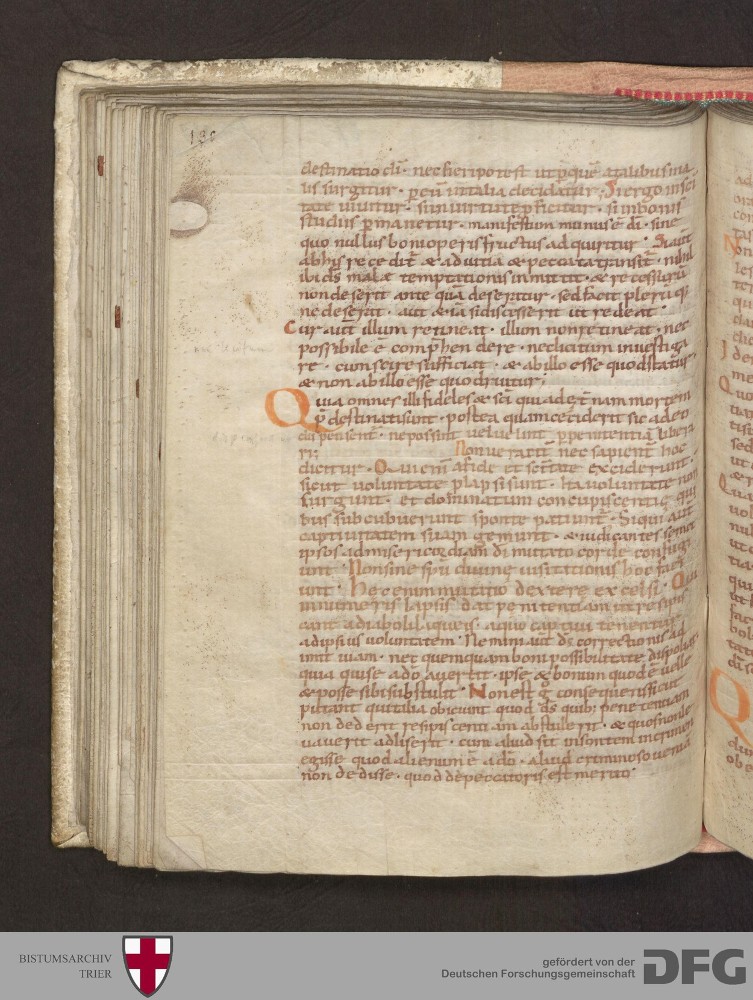 destinatio di · nec fieri potest ut p quē a talibus ma
lis surgitur · p eū in talia decidatur; Si ergo in sci
tate uiuitur · si in uirtute pficitur · si in bonis
studiis pmanetur · manifestum munus ē di · sine
quo nullus boni operis fructus adquiritur · Si aut
ab his recedit̄ & ad uitia & peccata transit̄ · nihil
ibi ds̄ malæ temptationis inmittit · & recessurū
non deserit ante quā deseratur · sed facit plerūq
ne deserat · aut & ia si discesserit ut redeat ·
Cur aut illum retineat · illum non retineat · nec
possibile ē comphendere · nec licitum inuestiga
re · cum scire sufficiat · & ab illo esse quod statur,
& non ab illo esse quod ruitur;
Quia omnes illi fideles & sci qui ad et̄nam mortem
p̄destinati sunt · postea quam ceciderint sic a deo
dispensent̄ · ne possint uel uelint p penitentiā libera
ri; Non ueracit̄ nec sapient̄ hoc
dicitur · Qui enī a fide et scitate exciderunt ·
sicut uoluntate plapsi sunt · ita uoluntate non
surgunt · et dominatum concupiscentię qui
bus subcubuerunt sponte patiunt̄ · Si qui aut
captiuitatem suam gemunt · & iudicantes semet
ipsos ad misericordiam di mutato corde confugi
unt · Non sine spū diuinę uisitationis hoc faci
unt · Hec enim mutatio dexterę excelsi · Qui
innumeris lapsis dat penitentiam ut resipis
cant a diaboli laqueis · a quo captiui tenentur
ad ipsius uoluntatem · Nemini aut ds̄ correctionis ad
imit uiam · nec quemquam boni possibilitate dispoliat
quia qui se a dō auertit · ipse & bonum quod ē uelle
& posse sibi substulit · Non est g consequens sicut
putant qui talia obiciunt quod ds̄ quib; penetentiam
non dederit resipiscentiam abstulerit · & quos non le
uauerit adliserit · cum aliud sit insontem in crimen
egisse quod alienum ē a dō · aliud criminoso ueniā
non dedisse · quod de peccatoris est merito ·
BISTUMSARCHIV
TRIER
gefördert von der
Deutschen Forschungsgemeinschaft
DFG